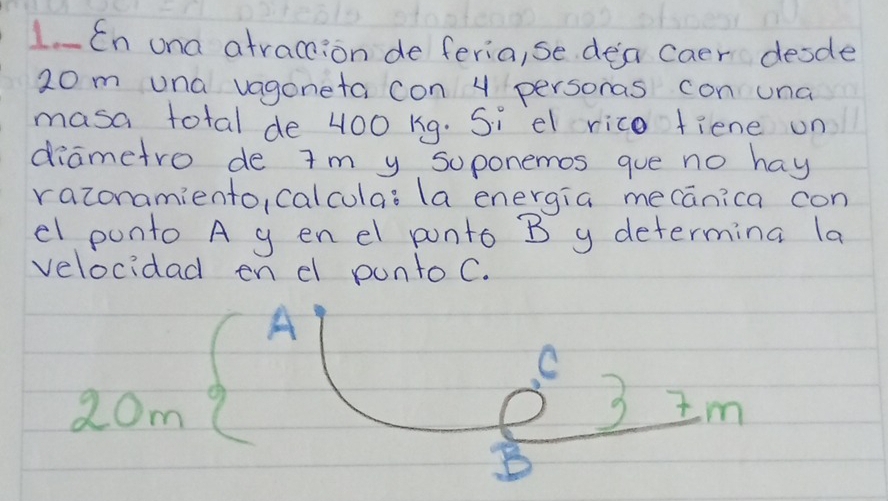 1.- En una atracción de feria, se deja caer desde
20 m una vagoneta con 4 personas con una
masa total de 400 Kg. Si el rico tiene un
diámetro de 7 m y suponemos que no hay
razonamiento, calcula: la energía mecánica con
el punto A y en el punto B y determina la
velocidad en el punto C.
A
C
20m { } 7m
B